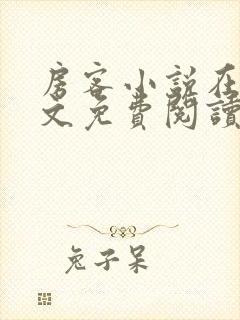 房客小説在
文免費閱讀
兔子呆